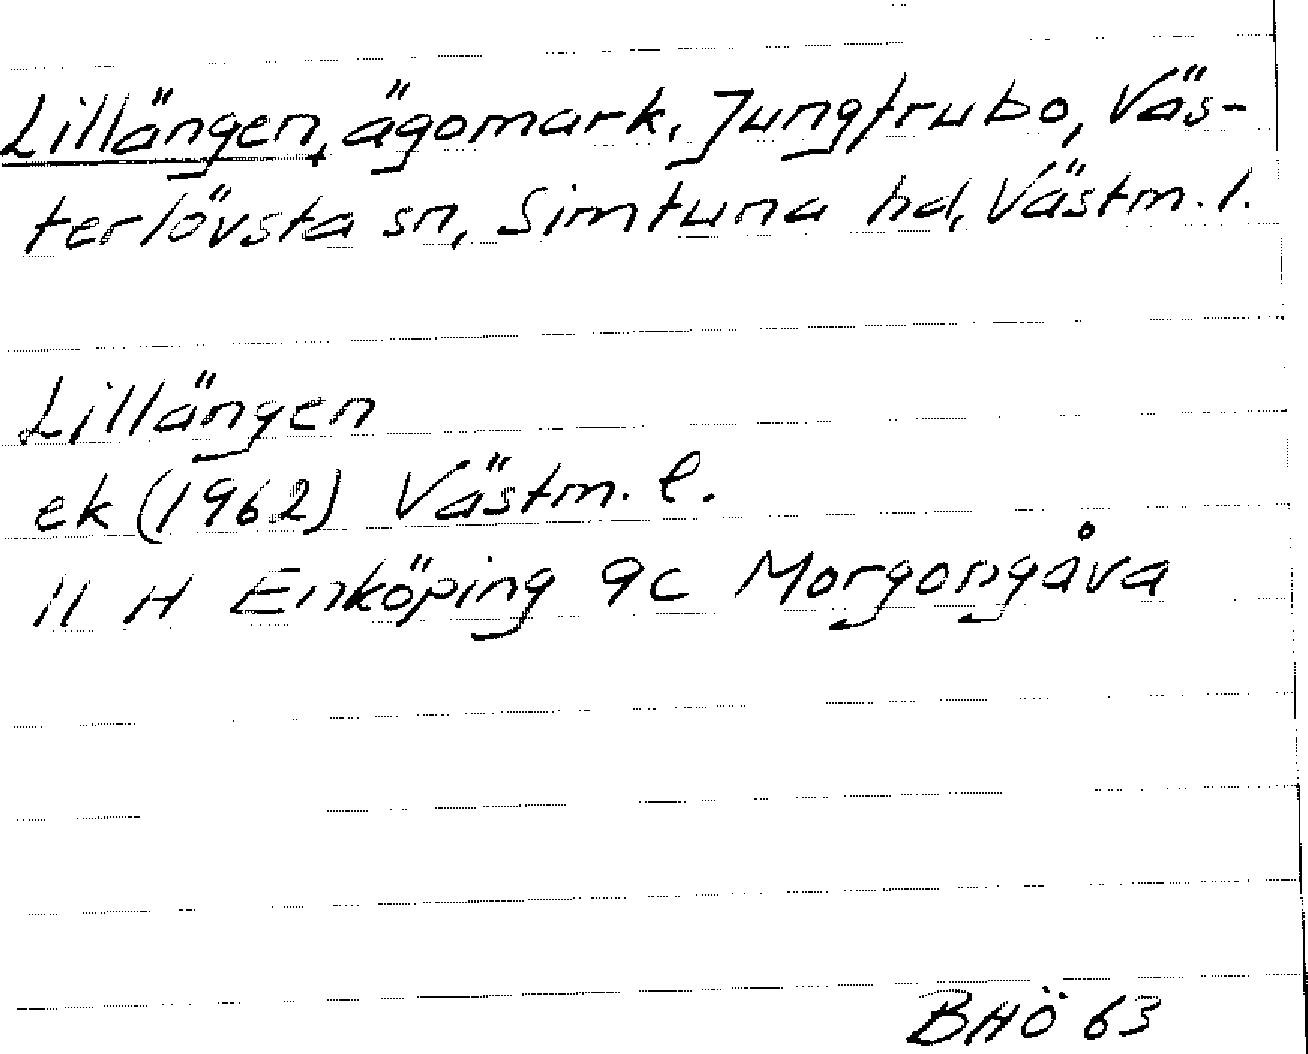 Lillängen, ägomark, Jungfrubo, Väs-
terlövsta sn, Simtuna hd, Västm. l.
Lillängen
ek (1962) Västm. l.
11 H Enköping 9c Morgongåva
BHÖ 63